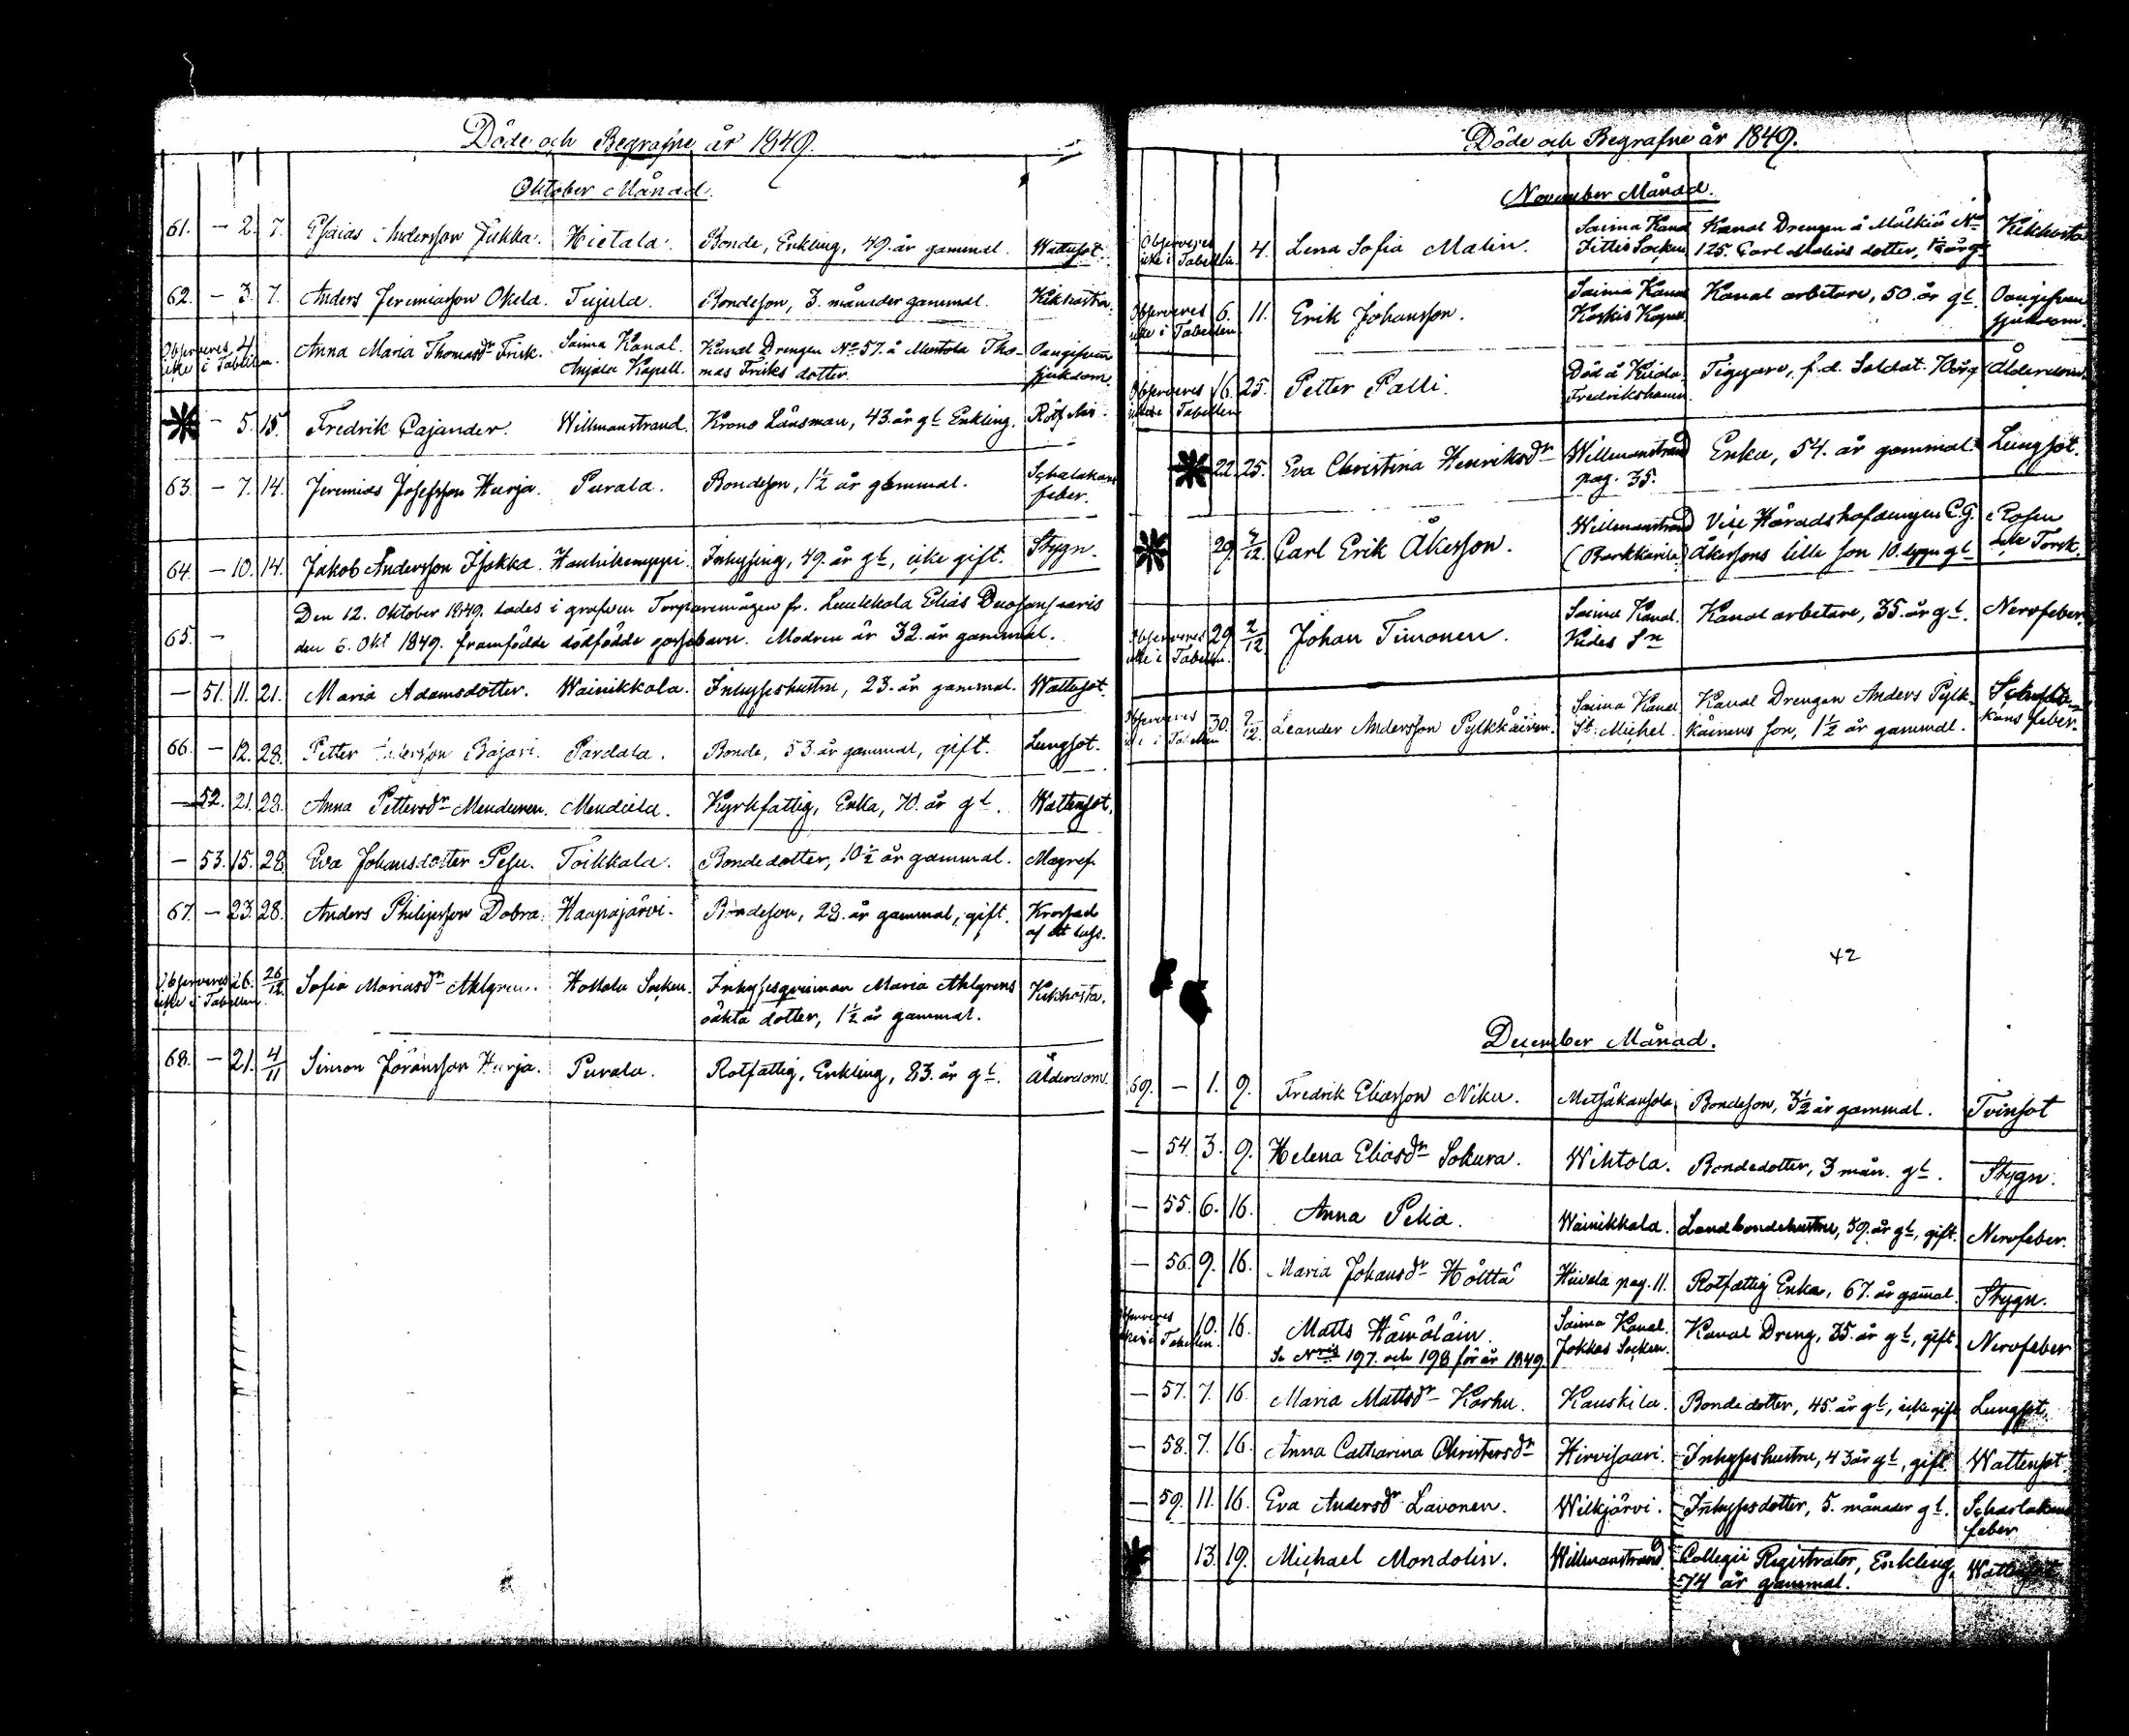 Döde och Begrafne år 1849.
Oktober Månad.
61. – 2. 7. Esaias Andersson Jukka. Hietala. Bonde, Enkling, 49. år gammal. Wattusot.
62. – 3. 7. Anders Jeremiasson Okela. Tujula. Bondeson, 3. månader gammal. Kikhosta.
Observeres icke i Tabellen. 4. Anna Maria Thomasdr Frisk. Saima Kanal. Anjala Kapell. Kanal Drengen No 57. å Mustola Tho-
mas Frisks dotter. Oangifven sjukdom.
– 5. 15. Fredrik Cajander. Willmanstrand. Krono Länsman, 43. år gl Enkling. Rötfeber
63. – 7. 14. Jeremias Josefsson Hurja. Purala. Bondeson, 1½ år gammal. Schalakans
feber.
64. – 10. 14. Jakob Andersson Isokka. Hanhikemppi. Inhysing, 49. år gl, icke gift. Stygn.
65. – Den 12. Oktober 1849. lades i grafven Torparemågen fr. Luukkola Elias
den 6. Okt 1849. framfödde dödfödde gossebarn. Modren är 32. år gammal.
– 51. 11. 21. Maria Adamsdotter. Wainikkala. Inhysseshustru, 23. år gammal. Wattusot.
66. – 12. 28. Petter Andersson Bajari. Pärdala. Bonde, 53. år gammal, gift. Lungsot.
– 52. 21. 28. Anna Pettersdr Menduren. Mendula. Kyrkfattig, Enka, 70. år gl. Wattusot.
– 53. 15. 28. Eva Johansdotter Pesu. Toikkala. Bondedotter, 10½ år gammal. Magref.
67. – 23. 28. Anders Philipsson Dobra. Haapajärvi. Bondeson, 28. år gammal, gift. Krossad
af ett lass.
Observeres icke i Tabellen. 26. 26/12. Sofia Mariasdr Ahlgren. Hollola Socken. Inhysesqvinnan Maria Ahlgrens
oäkta dotter, 1½ år gammal. Kikhosta.
68. – 21. 4/11 Simon Jöransson Hurja. Purala. Rotfattig, Enkling, 83. år gl. Ålderdom.
Döde och Begrafne år 1849.
November Månad.
Observeres icke i Tabellen. 1. 4. Lena Sofia Malin. Saima Kanal
Sittis Socken Kanal Drengen å Mälkiä No
125. Carl Malins dotter, 1½ år gl Kikhosta
Observeres icke i Tabellen 6. 11. Erik Johansson. Saima Kanal
Koskis Kapell. Kanal arbetare, 50. år gl. Oangifven
sjukdom.
Observeres icke i Tabellen 16. 25. Petter Palli. Död å
Fredrikshamn. Tiggare, f.d. Soldat. 70 år g Ålderdom.
22. 25. Eva Christina Henriksdr Willmanstrand
pag. 35. Enka, 54. år gammal. Lungsot.
29. 2/12. Carl Erik Åkersson. Willmanstrand Vise Häradshöfdingen C. G.
Åkerssons lille son 10. dygn gl Rosen
Torsk.
Observeres icke i Tabellen. 29. 2/12. Johan Timonen. Saima Kanal.
Kides Sn Kanal arbetare, 35. år gl. Nervfeber.
Observeres icke i Tabellen 30. 2/12. Leander Andersson Pylkkäinen. Saima Kanal
St. Michel. Kanal Drengen Anders Pylk-
käinens son, 1½ år gammal. Scharla-
kans feber.
42
December Månad.
69. – 1. 9. Fredrik Eliasson Niku. Metsäkansola Bondeson, 3½ år gammal. Tvinsot
– 54. 3. 9. Helena Eliasdr Sokura. Wihtola. Bondedotter, 3 mån. gl. Stygn.
– 55. 6. 16. Anna Pekia. Wainikkala. Landbondehustru, 39. år gl, gift. Nervfeber.
– 56. 9. 16. Maria Johansdr Hölttä Hiivola pag. 11. Rotfattig Enka, 67. år gamal. Stygn.
Observeres icke i Tabellen. 10. 16. Matts Hämäläin. Saima Kanal.
Se Nris 197. och 198 för år 1849. Jokkas Socken. Kanal Dreng, 35. år gl, gift. Nervfeber
– 57. 7. 16. Maria Mattsdr Korhu. Kauskila. Bondedotter, 45. år gl, icke gift Lungsot.
– 58. 7. 16. Anna Catharina Christersdr Hirvisaari. Inhysseshustru, 43 år gl, gift. Wattensot.
– 59. 11. 16. Eva Andersdr Lavonen. Wilkjärvi. Inhyssesdotter, 5. månader gl. Scharlakans
feber
13. 19. Michael Mondolin. Willmanstrand Collegii Registrator, Enkling,
74 år gammal. Wattusot